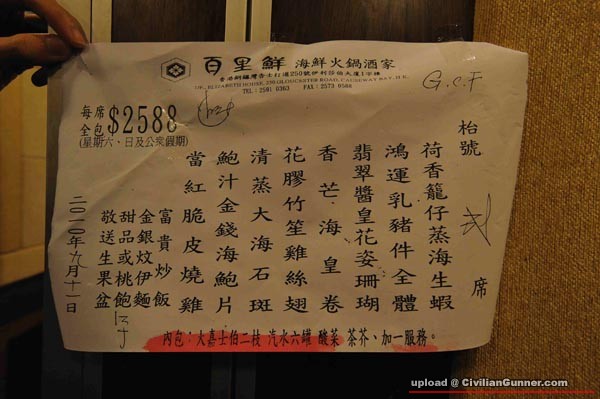 百里鮮 海鮮火鍋酒家
香港銅鑼灣告士打道250號伊利莎伯大廈1字樓
1/F., ELIZABETH HOUSE, 250 GLOUCESTER ROAD, CAUSEWAY BAY, H.K.
TEL : 2591 0363 FAX : 2573 0568
G.C.F
每席
全包 $2588
(星期六、日及公眾假期)
枱號 席
荷香籠仔蒸海生蝦
鴻運乳豬件全體
翡翠醬皇花姿珊瑚
香芒海皇卷
花膠竹笙雞絲翅
清蒸大海石斑
鮑汁金錢海鮑片
當紅脆皮燒雞
富貴炒飯
金銀炆伊麵
甜品或桃飽
敬送生果盆
二〇一〇年九月十一日
內包：大嘉士伯二枝 汽水六罐 酸菜 茶芥、加一服務。
upload @ CivilianGunner.com